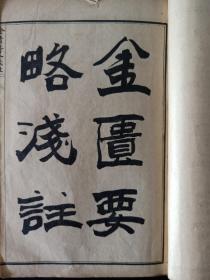 金匱要
略淺註